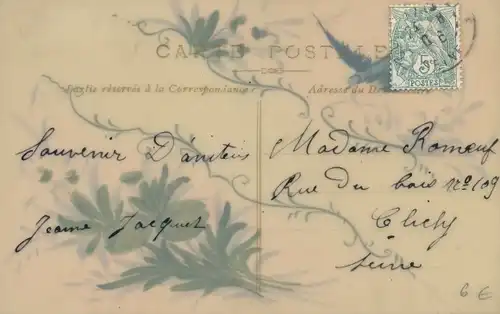 CARTE POSTALE
Partie réservée à la Correspondance
Adresse du
5c
POSTES
Souvenir D'amitiés
Jeanne Jacquet
Madame Romeuf
Rue du bois no 109
Clichy
Seine
6 €